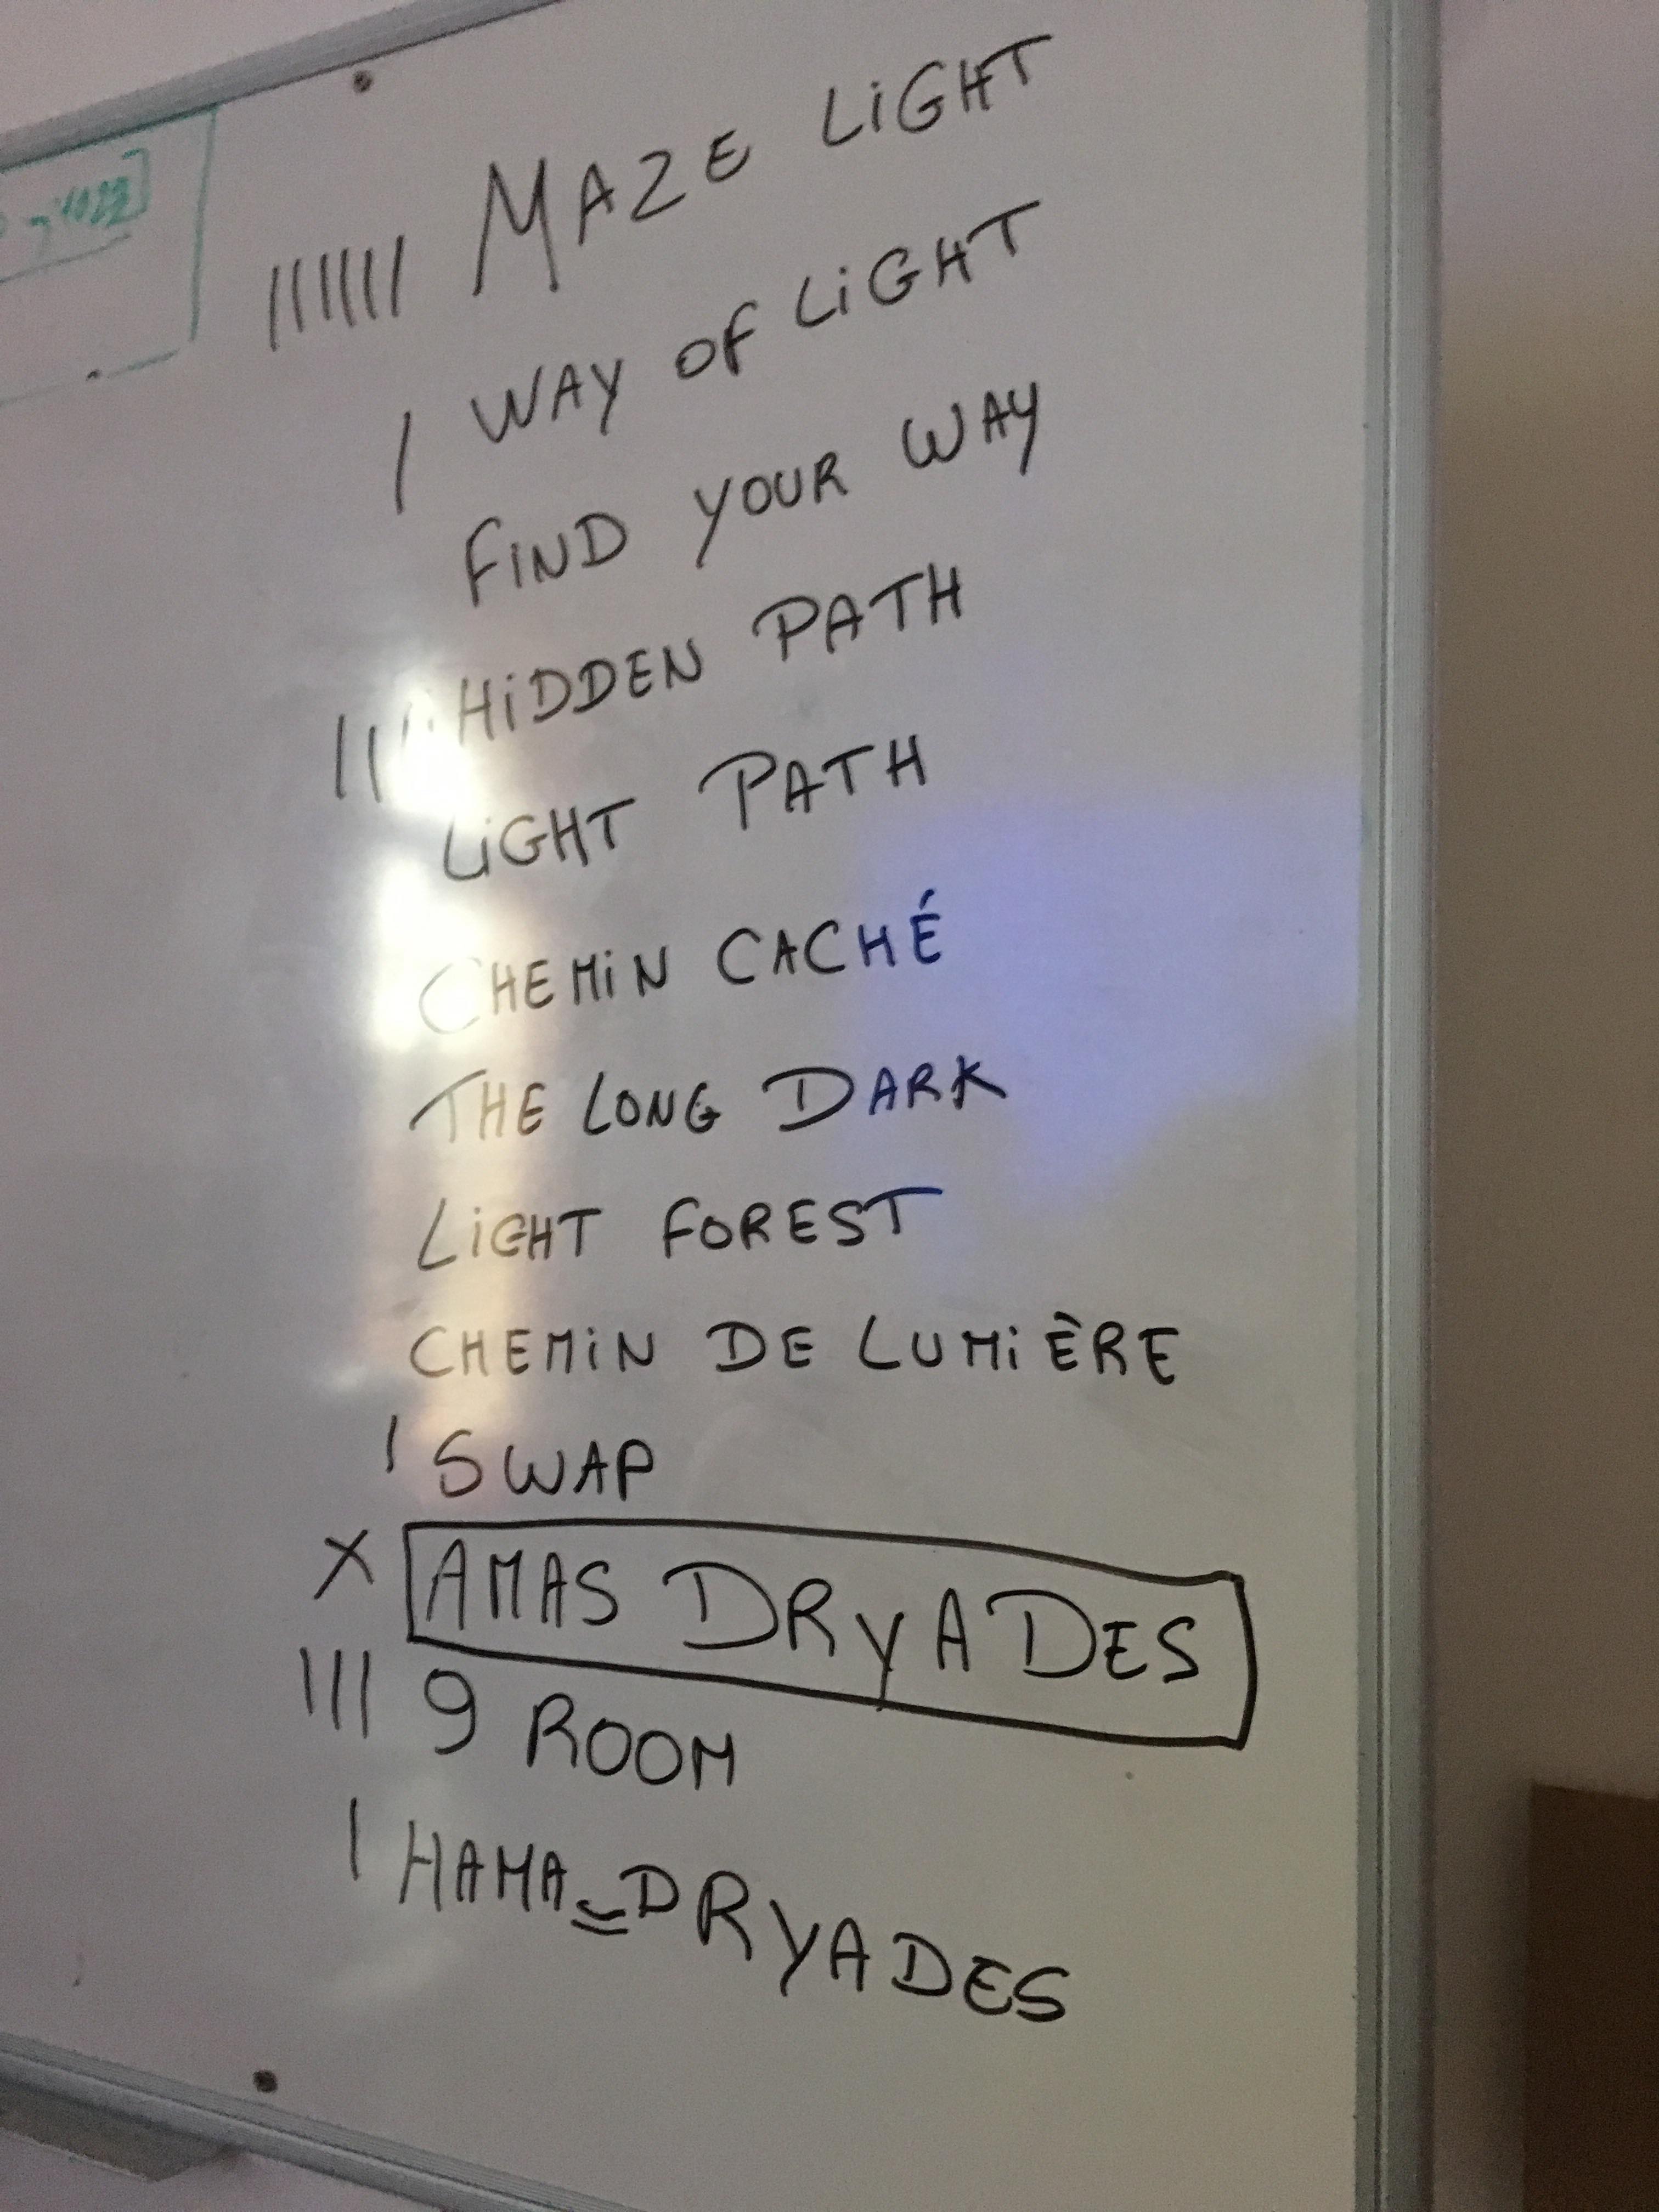 |||||| MAZE LiGHT
| WAY OF LiGHT
FiND YOUR WAY
||| HiDDEN PATH
LiGHT PATH
CHEMiN CACHÉ
THE LONG DARK
LiGHT FOREST
CHEMiN DE LUMiÈRE
| SWAP
X AMAS DRYADES
||| 9 ROOM
| HAMA=DRYADES